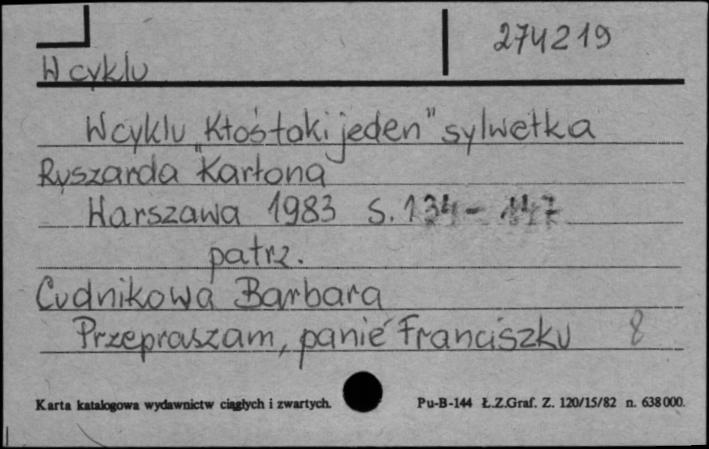 274219
W cyklu
W cyklu „Ktoś taki jeden" sylwetka
Ryszarda Kartona
Warszawa 1983 S. 134 - 147
patrz.
Cudnikowa Barbara
Przepraszam, panie Franciszku 8
Karta katalogowa wydawnictw ciągłych i zwartych. Pu-B-144 Ł.Z.Graf. Z. 120/15/82 n. 638000.